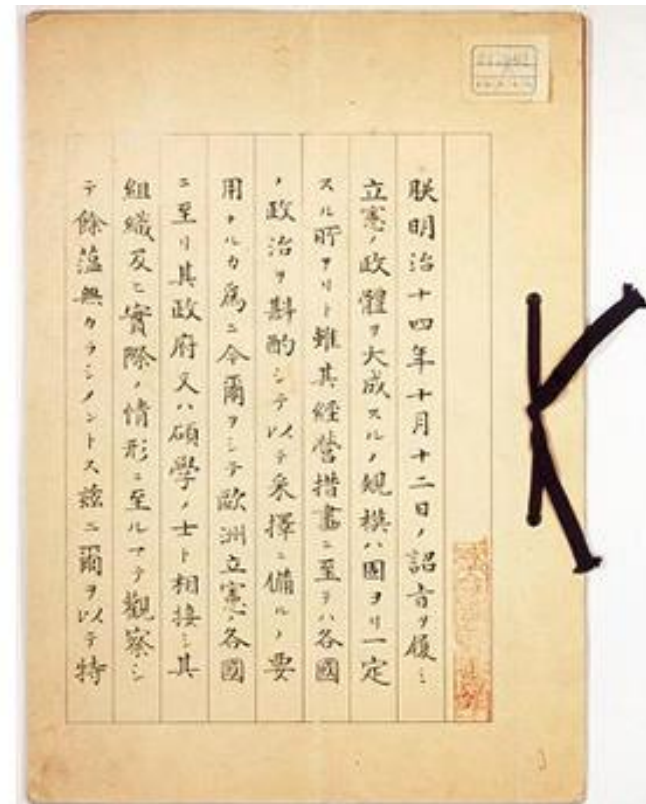 朕明治十四年十月十二日ノ詔旨ヲ履ミ
立憲ノ政體ヲ大成スルノ規模ハ固ヨリ一定
スル所アリト雖其經營措畫ニ至テハ各國
ノ政治ヲ斟酌シテ以テ采擇ニ備ルノ要
用ナルカ爲ニ今爾ヲシテ歐洲立憲ノ各國
ニ至リ其政府又ハ碩學ノ士ト相接シ其
組織及ヒ實際ノ情形ニ至ルマテ觀察シ
テ餘蘊無カラシメントス茲ニ爾ヲ以テ特